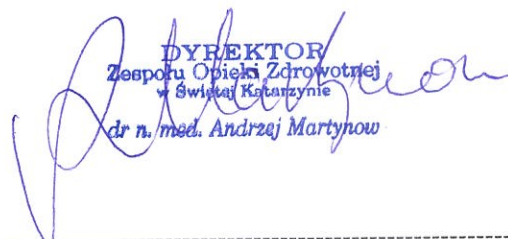 DYREKTOR
Zespołu Opieki Zdrowotnej
w Świętej Katarzynie
dr n. med. Andrzej Martynow